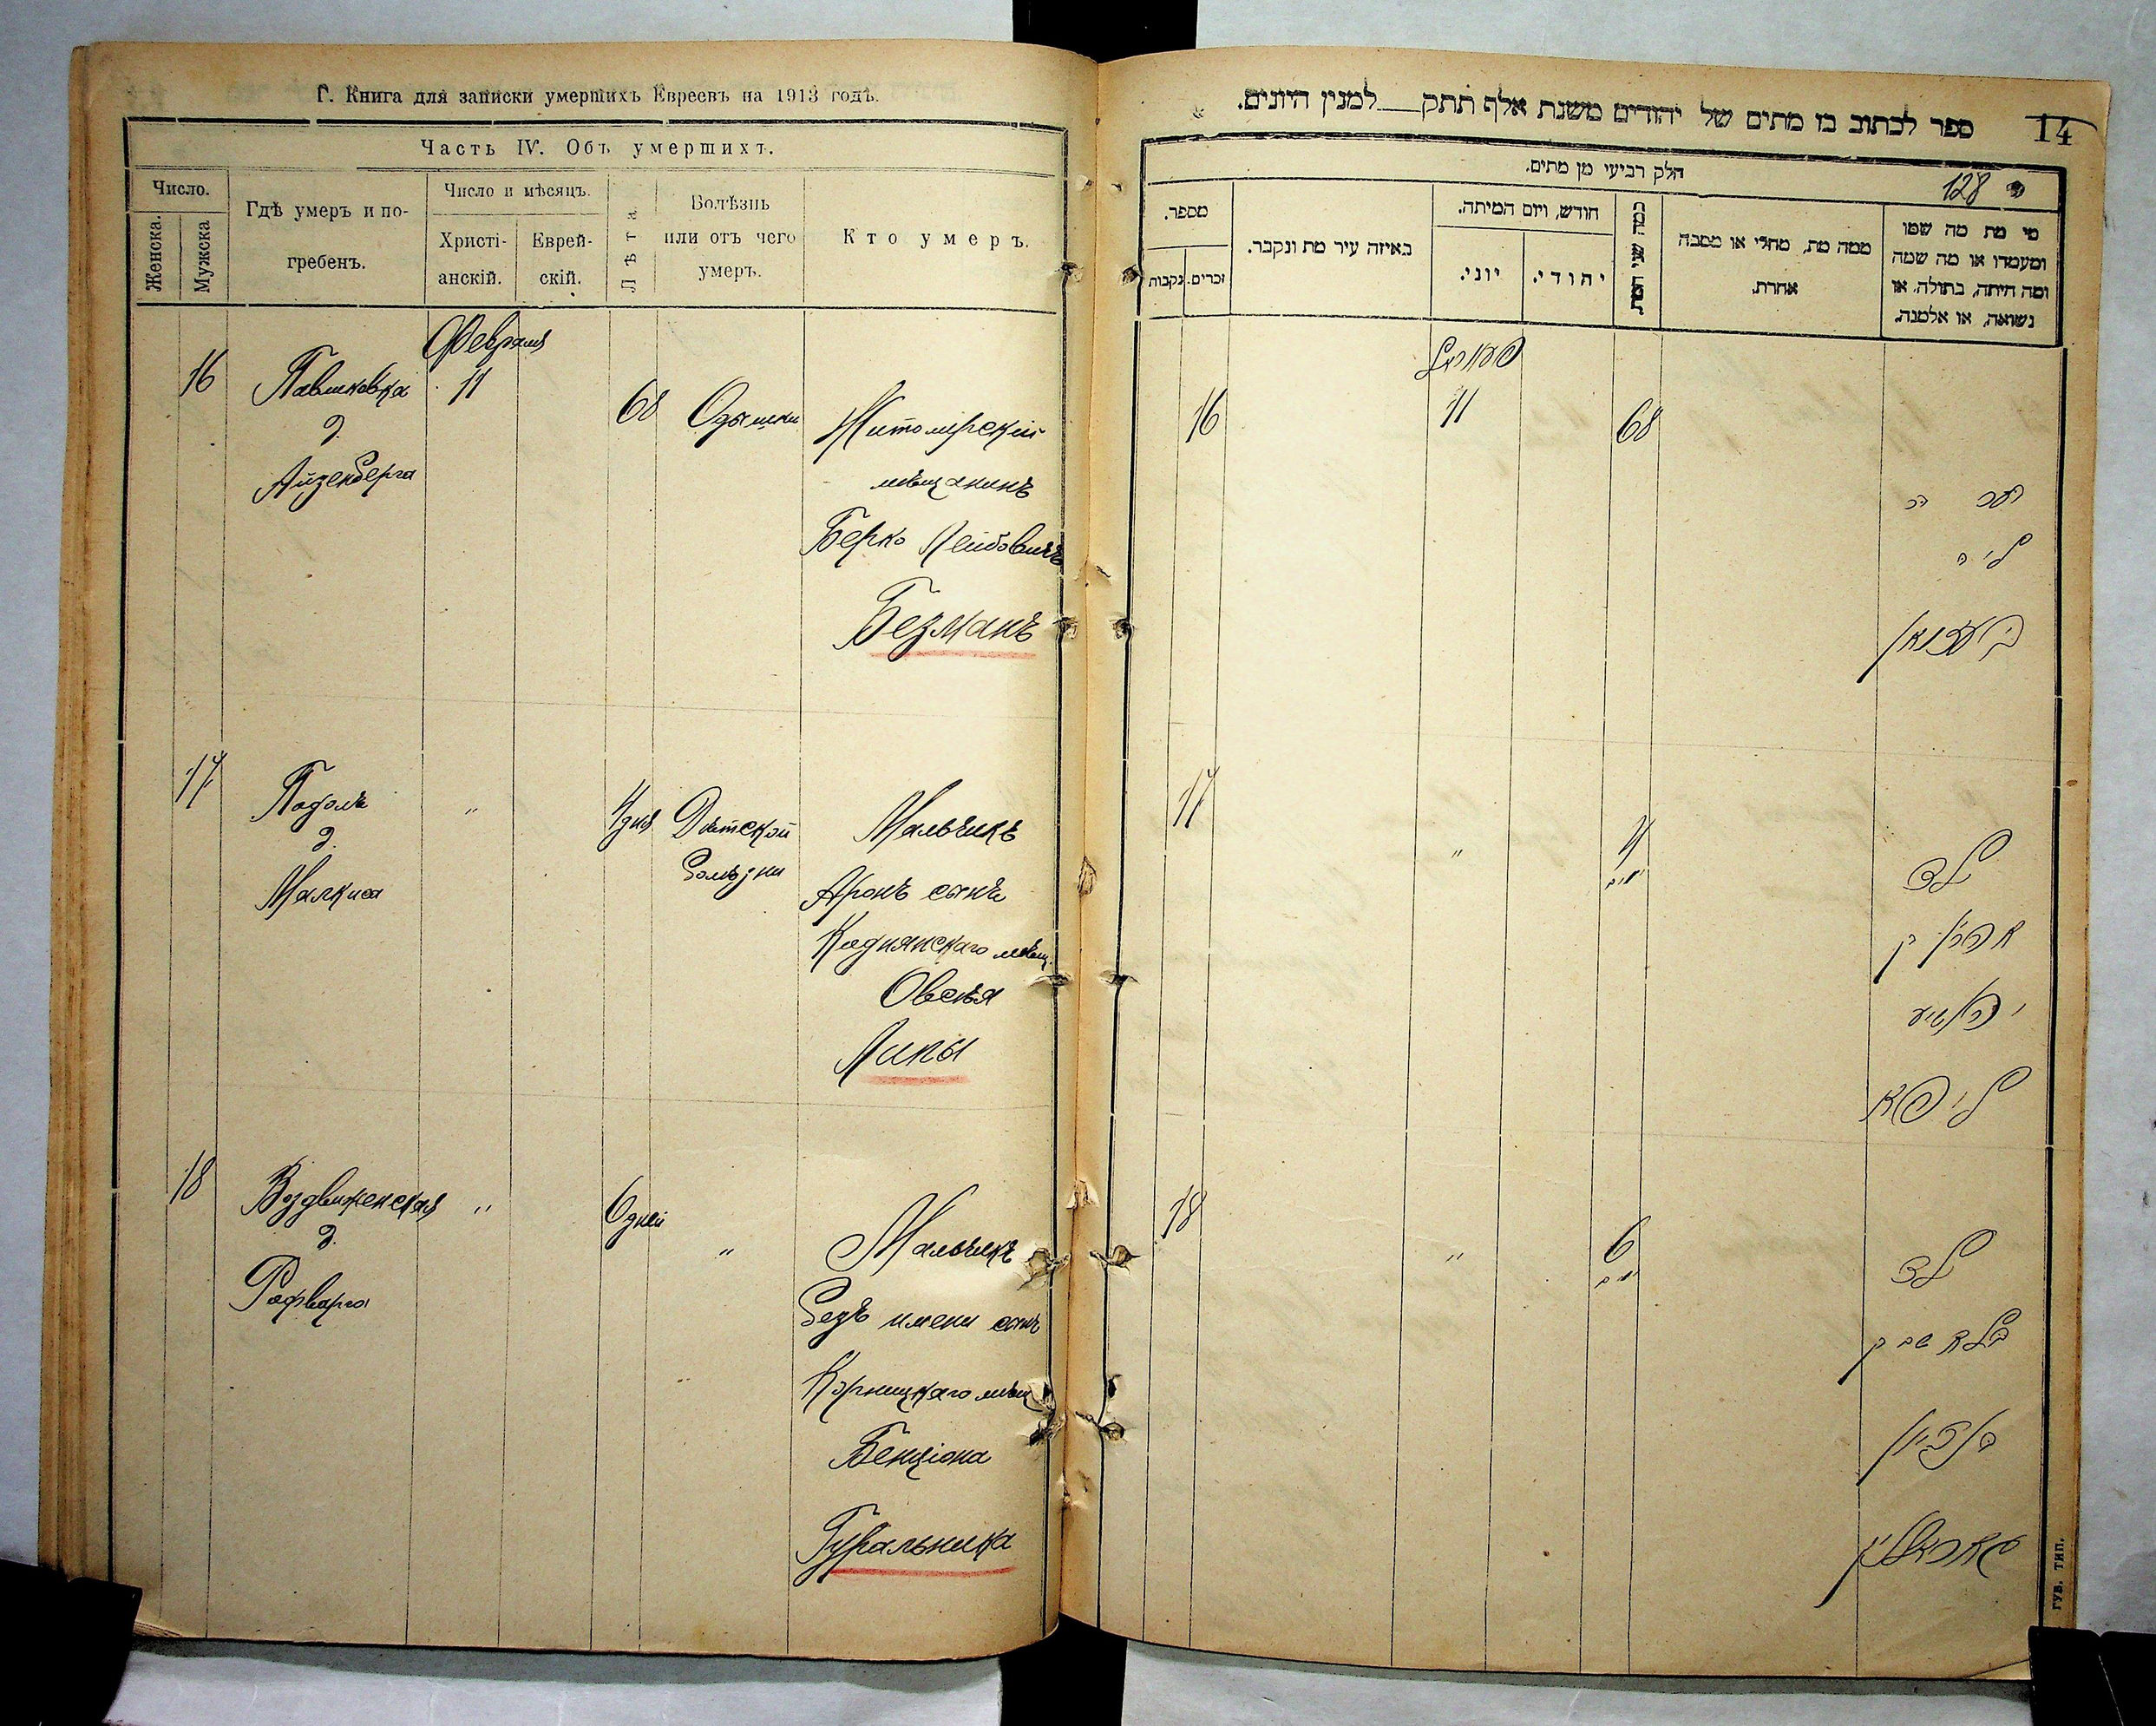 Г. Книга для записки умершихъ Евреевъ на 1913 годъ.
Часть IV. Объ умершихъ.
Число.
Женска.
Мужска
Гдѣ умеръ и по-
гребенъ.
Число и мѣсяцъ.
Христі-
анскій.
Еврей-
скій.
Лѣта
Болѣзнь
или отъ чего
умеръ.
Кто умеръ.
Февраля
16
Павликовка
д.
Айзенберга
11
68
Одышки
Житомірскій
мѣщанинъ
Берко Лейбовичъ
Безманъ
17
Подолъ
д.
Малкиса
"
4 дня
Дѣтской
болѣзни
Мальчикъ
Аронъ сынъ
Коднянскаго мѣщ.
Овсѣя
Липы
18
Воздвиженская
д.
"
6 дней
"
Мальчикъ
безъ имени сынъ
мѣщ
Бенціона
Гуральника
ספר לכתוב בו מתים של יהודים משנת אלף תתק למנין היונים.
14
חלק רביעי מן מתים.
128
מספר.
זכרים.
נקבות
באיזה עיר מת ונקבר.
חודש, ויום המיתה.
יוני.
יהודי.
כמה שני המת
ממה מת, מחלי או מסבה
אחרת.
מי מת מה שמו
ומעמדו או מה שמה
ומה היתה, בתולה, או
נשואה, או אלמנה.
16
11
68
בעזמאן
17
"
4
ילד
אהרן בן
ליפא
18
"
6
ילד
בלא שם בן
בן ציון
גוראלניק
ГУБ. ТИП.